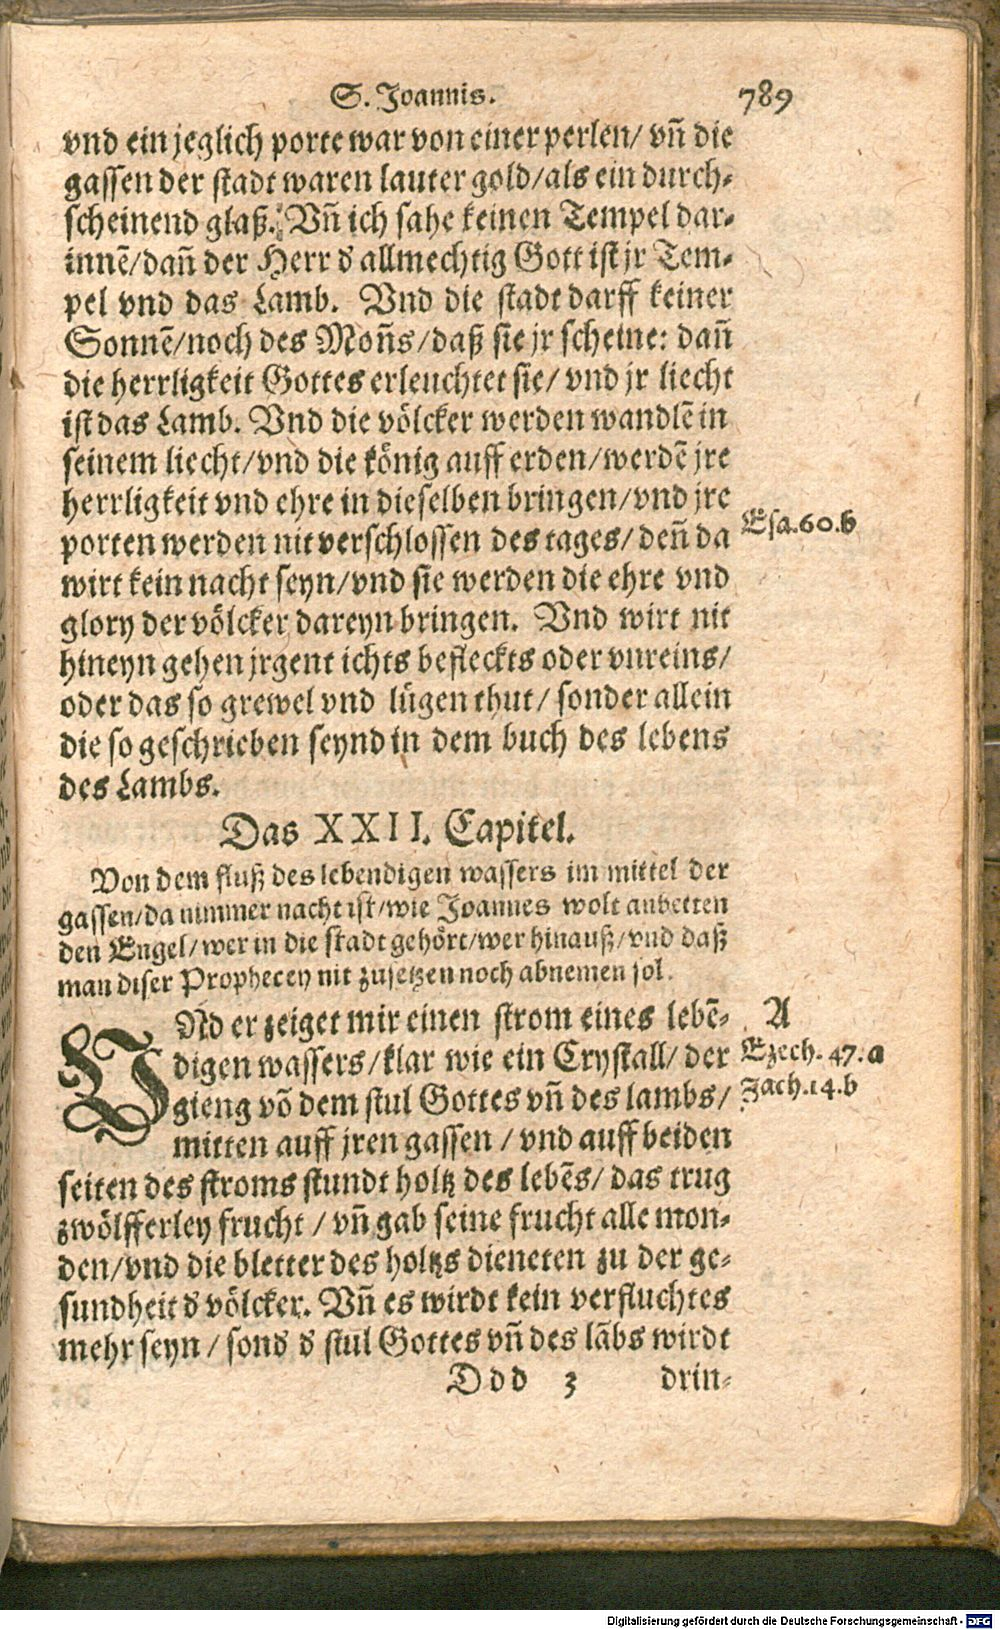 S. Joannis. 789
vnd ein jeglich porte war von einer perlen/ vñ die
gassen der stadt waren lauter gold/als ein durch-
scheinend glaß. Vñ ich sahe keinen Tempel dar-
innẽ/dañ der Herr d' allmechtig Gott ist jr Tem-
pel vnd das Lamb. Vnd die stadt darff keiner
Sonnẽ/noch des Moñs/daß sie jr scheine: dañ
die herrligkeit Gottes erleuchtet sie/ vnd jr liecht
ist das Lamb. Vnd die völcker werden wandlẽ in
seinem liecht/vnd die könig auff erden/werdẽ jre
herrligkeit vnd ehre in dieselben bringen/vnd jre
porten werden nit verschlossen des tages/ deñ da
Esa.60.b
wirt kein nacht seyn/vnd sie werden die ehre vnd
glory der völcker dareyn bringen. Vnd wirt nit
hineyn gehen jrgent ichts befleckts oder vnreins/
oder das so grewel vnd lügen thut/ sonder allein
die so geschrieben seynd in dem buch des lebens
des Lambs.
Das XXII. Capitel.
Von dem fluß des lebendigen wassers im mittel der
gassen/da nimmer nacht ist/wie Joannes wolt anbetten
den Engel/wer in die stadt gehört/wer hinauß/vnd daß
man diser Prophecey nit zusetzen noch abnemen sol.
VNd er zeiget mir einen strom eines lebẽ-
A
digen wassers/klar wie ein Crystall/ der
Ezech. 47.a
gieng võ dem stul Gottes vñ des lambs/
Zach.14.b
mitten auff jren gassen / vnd auff beiden
seiten des stroms stundt holtz des lebẽs/ das trug
zwölfferley frucht / vñ gab seine frucht alle mon-
den/vnd die bletter des holtzs dieneten zu der ge-
sundheit d' völcker. Vñ es wirdt kein verfluchtes
mehr seyn / sond' d' stul Gottes vñ des lãbs wirdt
Ddd 3 drin-
Digitalisierung gefördert durch die Deutsche Forschungsgemeinschaft - DFG